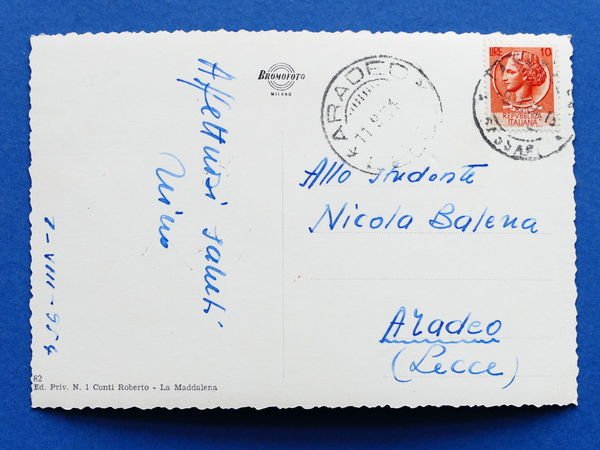 Affettuosi saluti
Nino
7-VIII-954
BROMOFOTO
MILANO
82
Ed. Priv. N. 1 Conti Roberto - La Maddalena
ARADEO
LIRE 10
REPVBBLICA
ITALIANA
SASSARI
Allo studente
Nicola Balena
Aradeo
(Lecce)